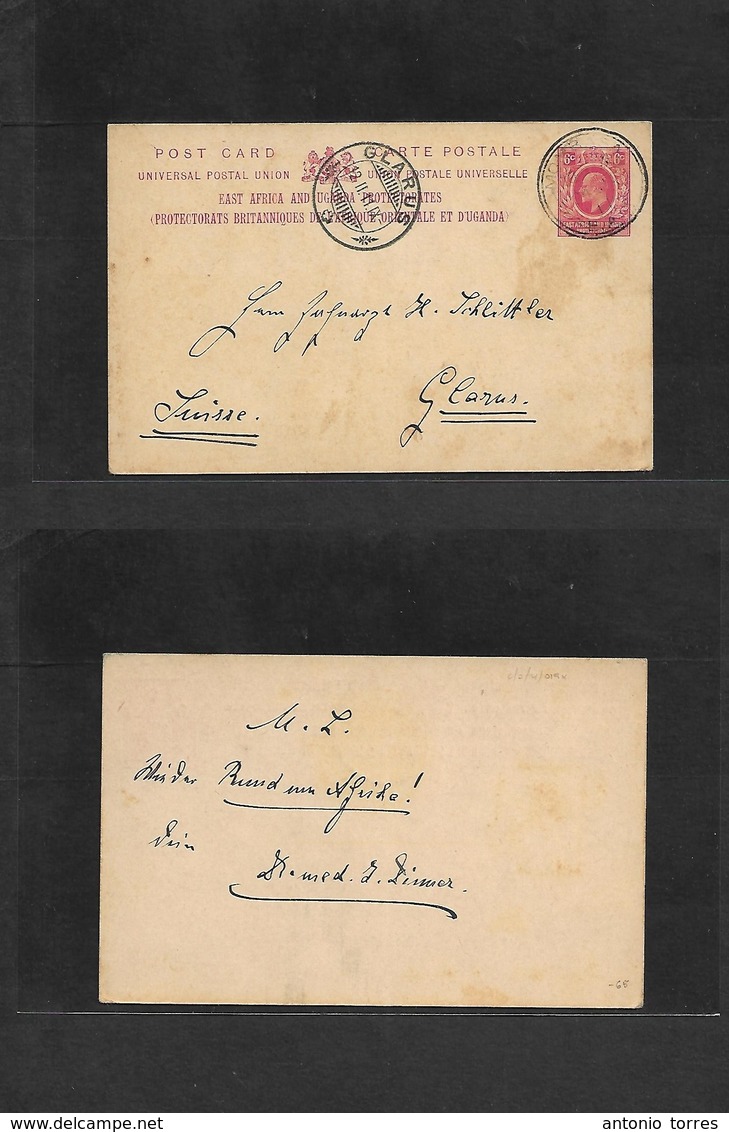 POST CARD CARTE POSTALE
UNIVERSAL POSTAL UNION UNION POSTALE UNIVERSELLE
EAST AFRICA AND UGANDA PROTECTORATES
(PROTECTORATS BRITANNIQUES DE L'AFRIQUE ORIENTALE ET D'UGANDA)
6c 6c
GLARUS
Herrn Zahnarzt H. Schlittler
Glarus.
Suisse.
M. L.
Wieder Rund um Afrika!
Dein
Dr. med. J. Dinner.
-68
antonio torres